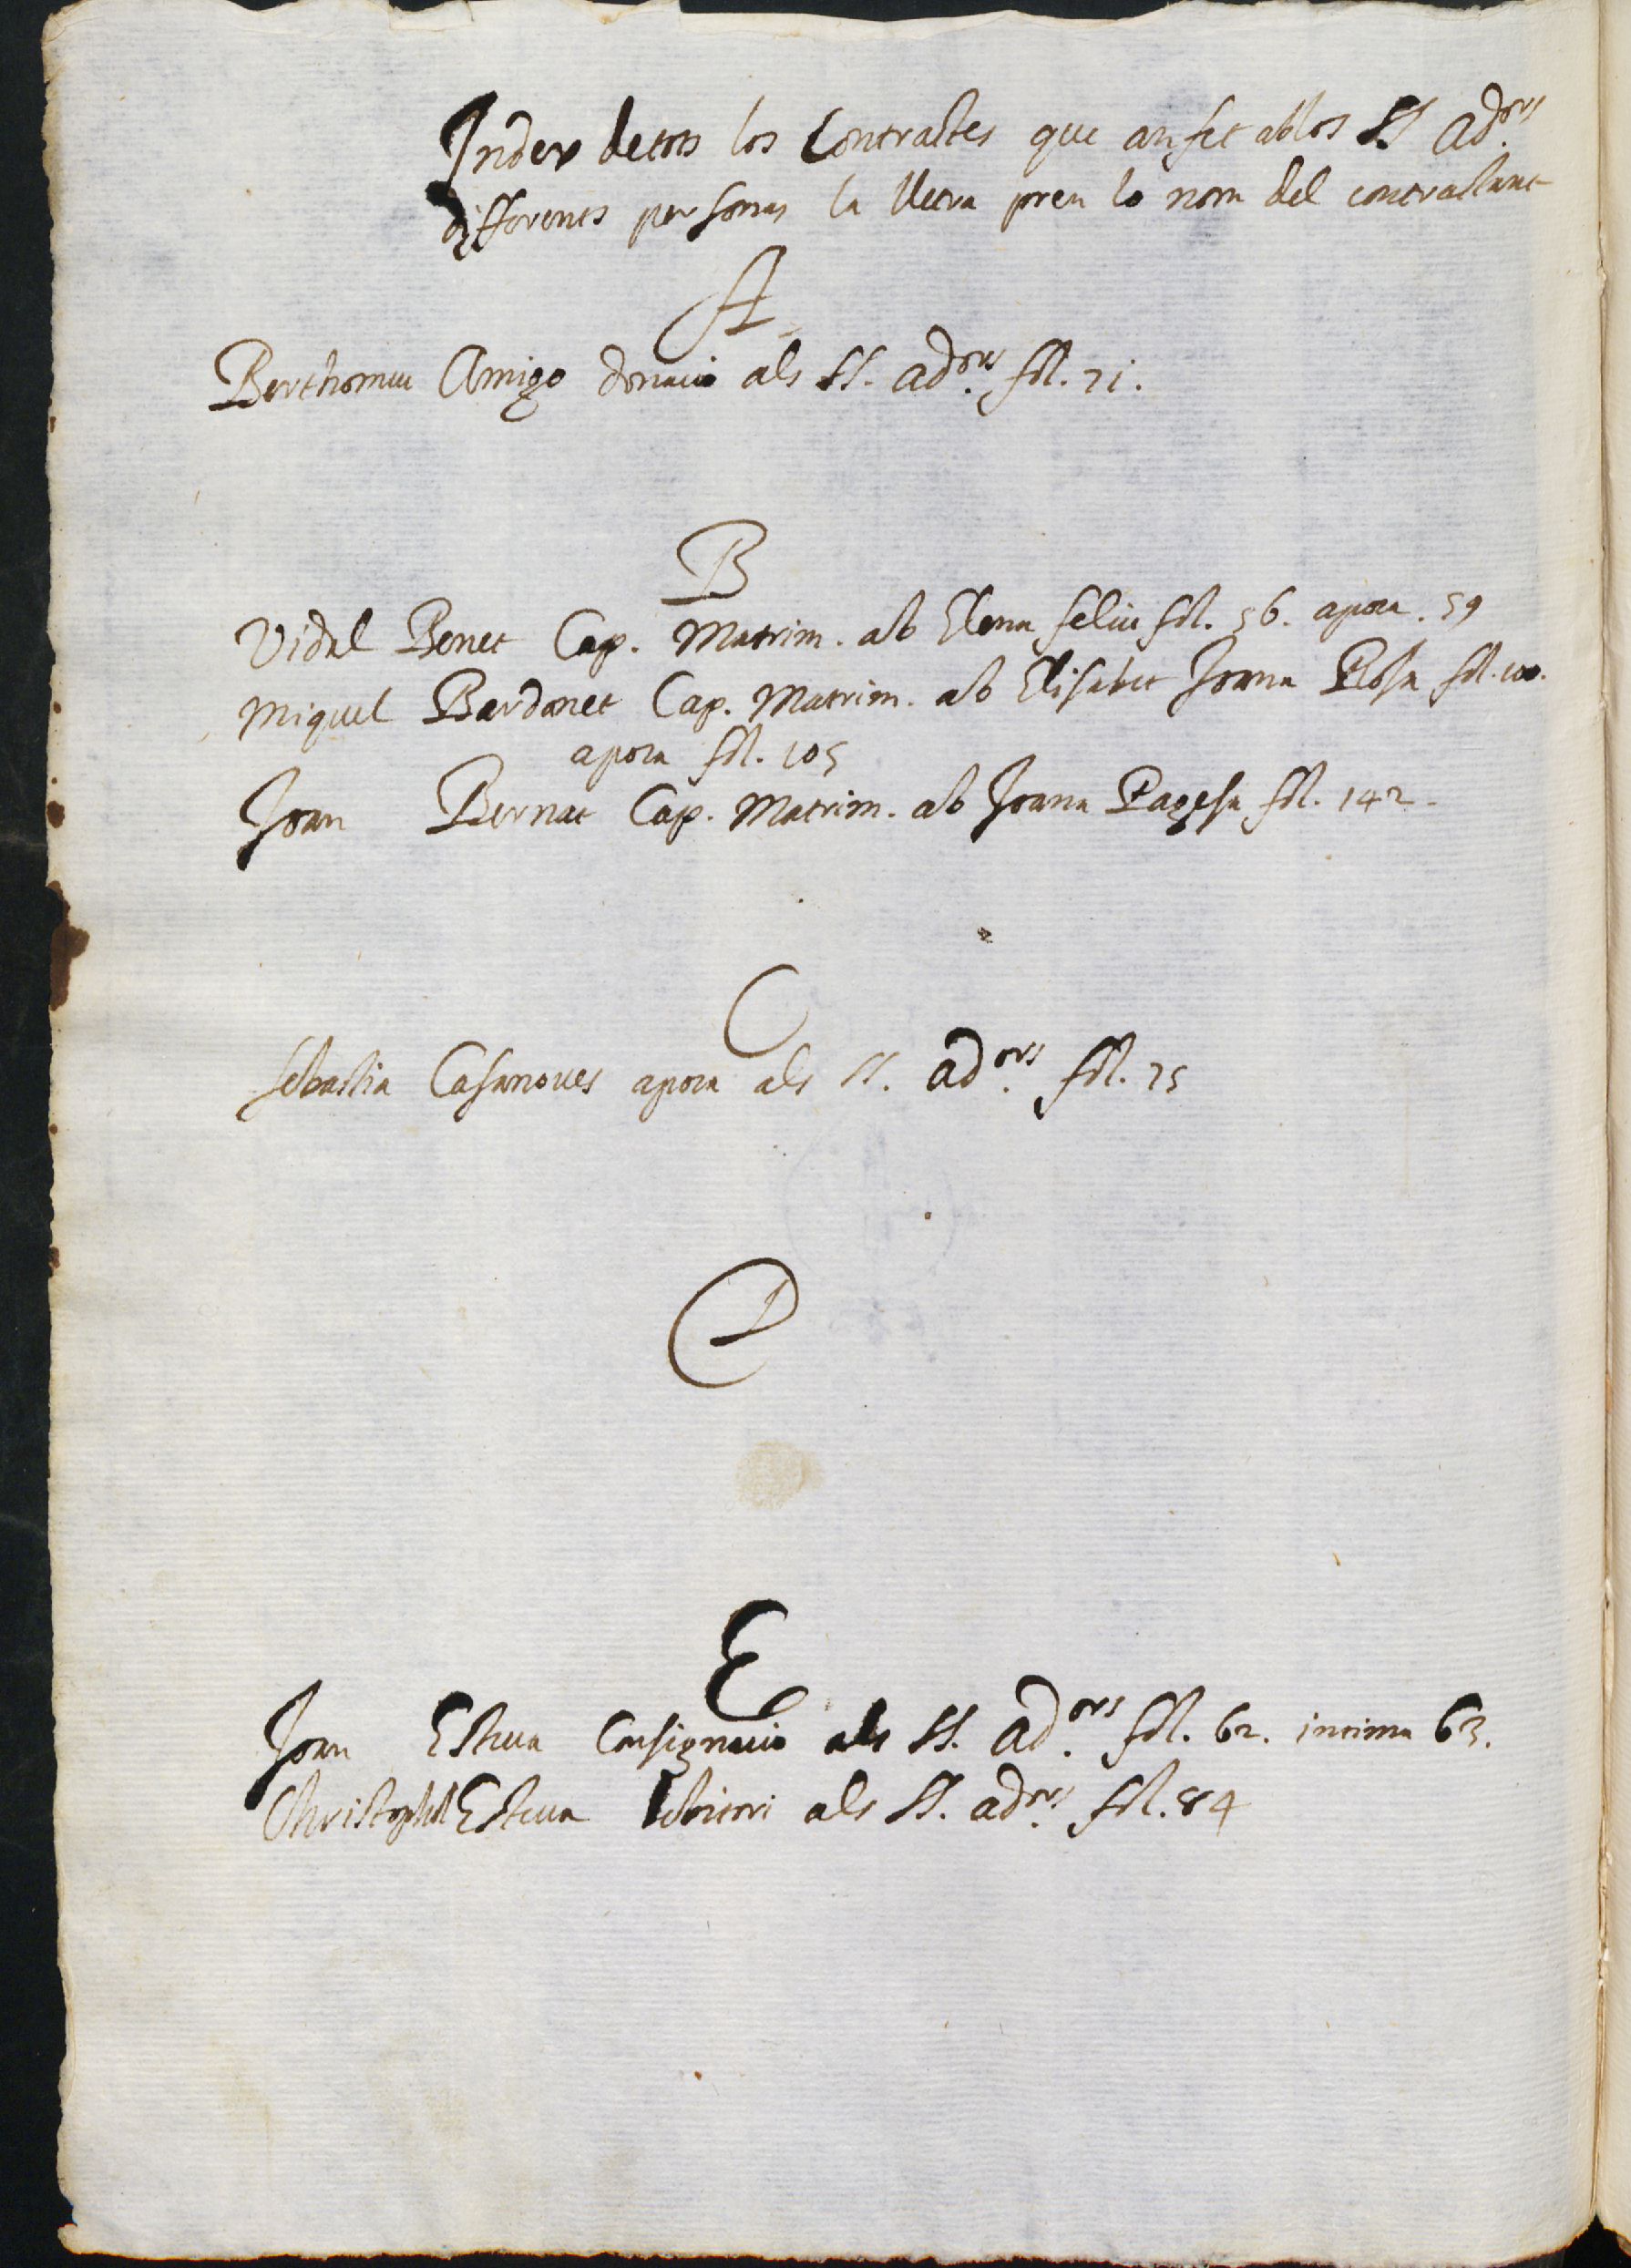 Index detots los Contractes que an fet ablos SS Ad.ors
differents personas la lletra pren lo nom del contractant
A
Berthomeu Amigo donacio als SS. ad.ors fol. 71.
B
Vidal Benet Cap. Matrim. ab Elena feliu fol. 56. apoca. 59
Miquel Bardonet Cap. Matrim. ab Elisabet Joana Rosa fol. 100.
apoca fol. 105
Joan Bernat Cap. Matrim. ab Joana Pagesa fol. 142.
C
sebastia Casanoves apoca als SS. ad.ors fol. 75
D
E
Joan Esteva Consignacio als SS. ad.ors fol. 62. intima 63.
Christophol Esteva debitori als SS. ad.ors fol. 84